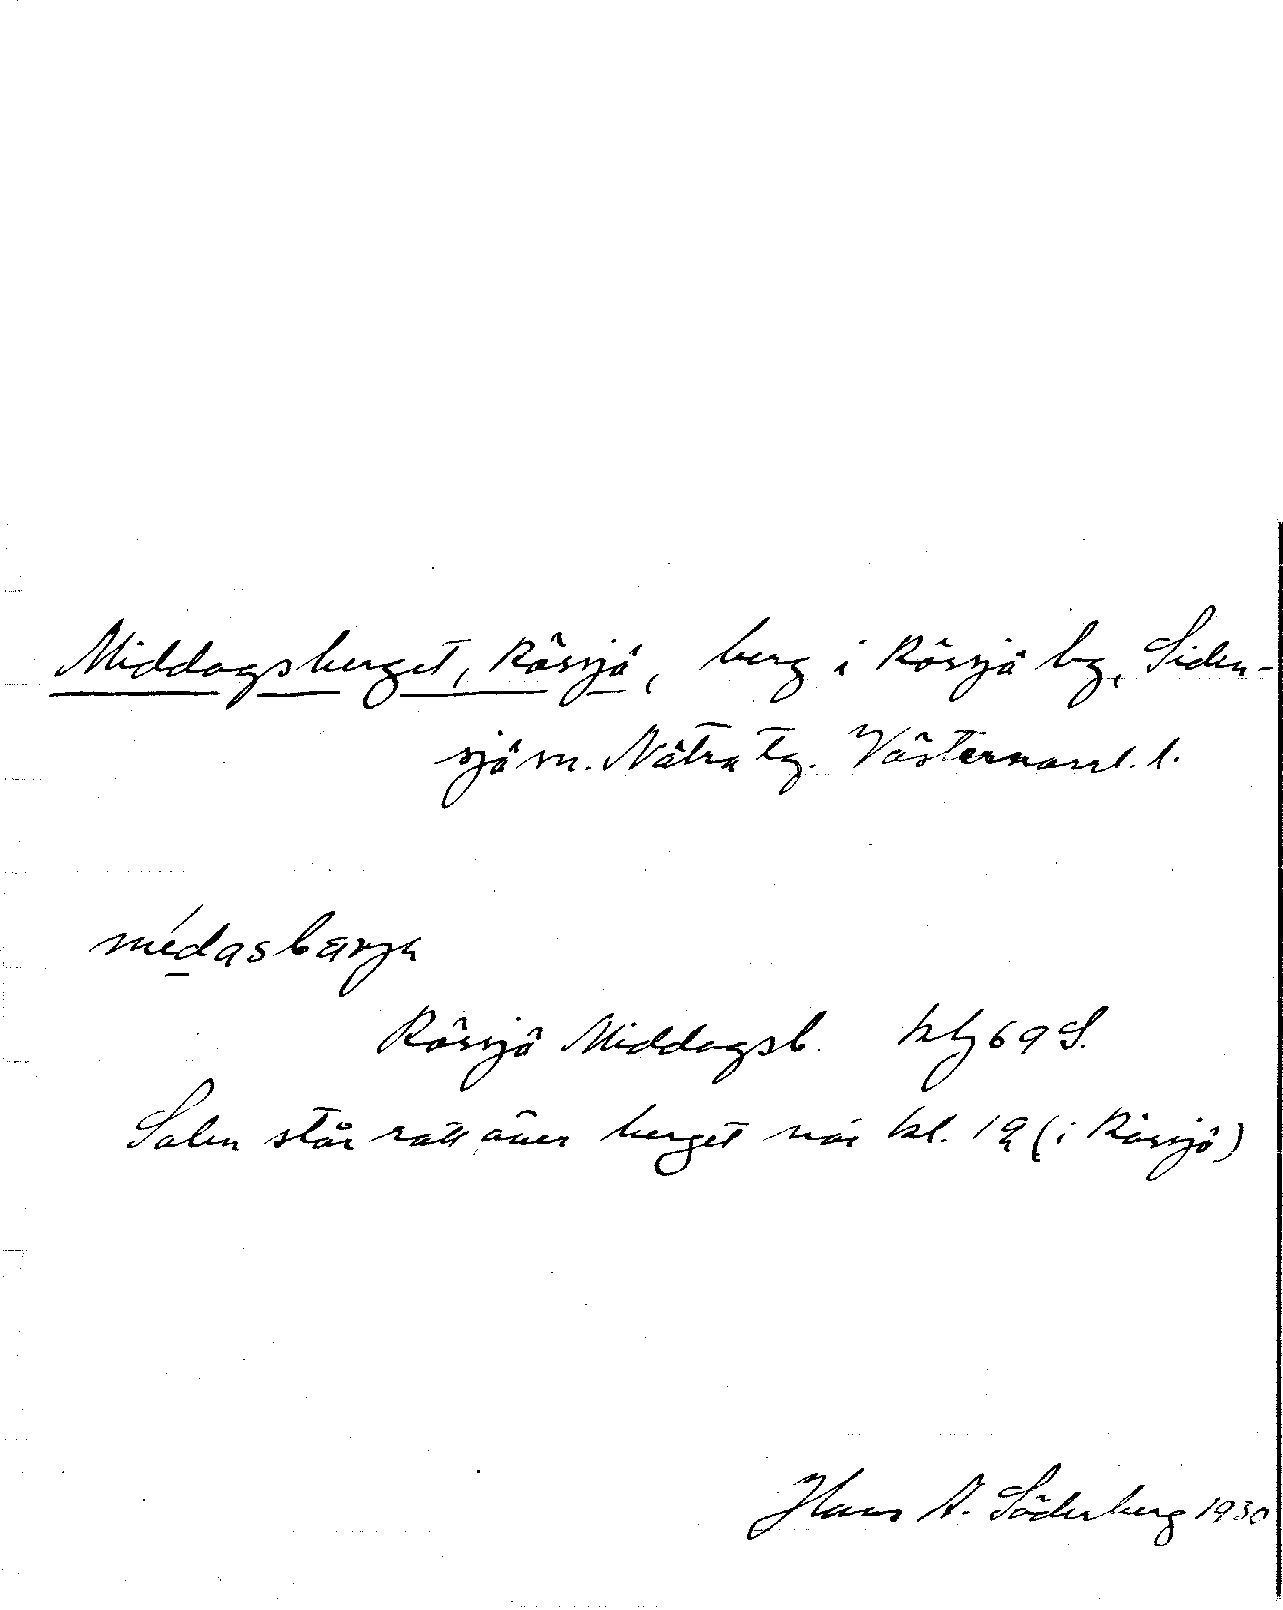 Middagsberget, Rössjö, berg i Rössjö by, Siden-
sjö sn. Nätra tg. Västernorrl. l.
médasbärje
Rössjö Middagsb. kbl 69 S.
Solen står rätt över berget när kl. 12 (i Rössjö)
Hans A. Söderberg 1930